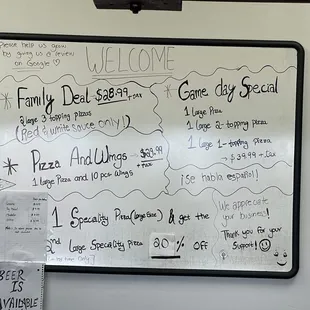 Please help us grow
by giving us a review
on Google ♡
WELCOME
* Family Deal $28.99 + tax
2 large 3 topping pizzas
(Red & white sauce only!)
* Pizza And Wings → $28.99
+ tax
1 Large Pizza and 10 pcs wings
* Game day Special
1 large Pizza
1 large 2-topping pizza
1 large 1-topping pizza
→ $39.99 + tax
¡Se habla español!
1 Speciality Pizza (large size) & get the
2nd Large Speciality pizza 20% Off
Only!)
We appreciate
your business!
Thank you for your
Support!
BEER
IS
AVAILABLE